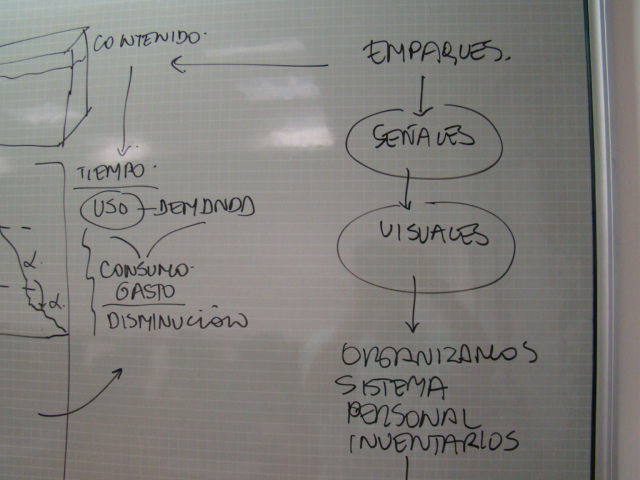 CONTENIDO.
TIEMPO.
USO - DEMANDA
CONSUMO.
GASTO
DISMINUCIÓN
α.
α.
EMPAQUES.
SEÑALES
VISUALES
ORGANIZARLOS
SISTEMA
PERSONAL
INVENTARIOS